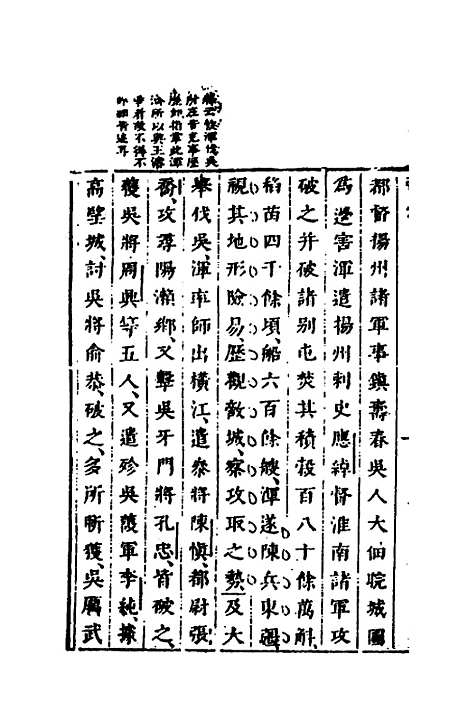 都督揚州諸軍事鎮壽春吳人大佃皖城圖
爲邊害渾遣揚州刺史應綽督淮南諸軍攻
破之并破諸别屯焚其積穀百八十餘萬斛、
稻苗四千餘頃、船六百餘艘、渾遂陳兵東疆、
視其地形險易、歷觀敵城、察攻取之勢、及大
舉伐吳、渾率師出橫江、遣叅將陳愼、都尉張
喬、攻尋陽瀨鄉、又擊吳牙門將孔忠、皆破之、
獲吳將周興等五人、又遣殄吳護軍李純、據
高望城、討吳將俞恭、破之、多所斬獲、吳厲武